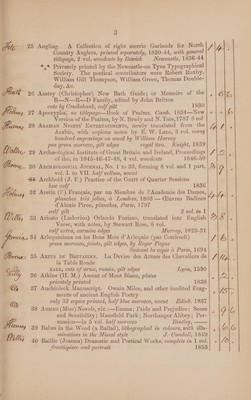 3
25 Angling. A Collection of right merrie Garlands for North
Country Anglers, printed separately, 1820-44, with general
titlepage, 2 vol. woodcuts by Bewick Newcastle, 1836-44
*** Privately printed by the Newcastle-on-Tyne Typographical
Society. The poetical contributors were Robert Roxby,
William Gill Thompson, William Green, Thomas Double-
day, &c.
26 Anstey (Christopher) New Bath Guide; or Memoirs of the
B—N—R—D Family, edited by John Britton
cuts by Cruikshank, calf gilt 1830
27 Apocrypha, no titlepage—Book of Psalms. Cand. 1654—New
Version of the Psalms, by N. Brady and N. Tate, 1787 3 vol
28 Arabian Nights' Entertainments, newly translated from the
Arabic, with copious notes by E. W. Lane, 3 vol. many
hundred engravings on wood by William Harvey
pea green morocco, gilt edges royal 8vo. Knight, 1839
29 Archæological Institute of Great Britain and Ireland, Proceedings
of the, in 1845-46-47-48, 4 vol. woodcuts 1846-50
30 Archæological Journal, No. 1 to 32, forming 8 vol. and 1 part.
vol. I. to VII. half vellum, uncut
31 Archbold (J. F.) Practice of the Court of Quarter Sessions
law calf 1836
32 Aretin (l') Français, par un Membre de l'Académie des Dames,
planches très jolies, à Londres, 1803 — Œuvres Badines
d'Alexis Piron, planches, Paris, 1797
calf gilt 2 vol in 1
33 Ariosto (Ludovico) Orlando Furioso, translated into English
Verse, with notes, by Stewart Rose, 8 vol.
calf extra, carmine edges Murray, 1823-31
34 Arlequiniana ou les Bons Mots d'Arlequin (par Cotolendi)
green morocco, joints, gilt edges, by Roger Payne
Suivant la copie à Paris, 1694
35 Artus de Bretagne. La Devise des Armes des Chevaliers de
la Table Ronde
rare, cuts of arms, russia, gilt edges Lyon, 1590
36 Atkins (H. M.) Ascent of Mont Blanc, plates
privately printed 1838
37 Auchinleck Manuscript. Owain Miles, and other inedited Frag-
ments of ancient English Poetry
only 32 copies printed, half blue morocco, uncut Edinb. 1837
38 Austen (Miss) Novels, viz.:—Emma; Pride and Prejudice; Sense
and Sensibility; Mansfield Park; Northanger Abbey; Per-
suasion—in 5 vol. half morocco Bentley,
39 Babes in the Wood (a Ballad), lithographed in colours, with illu-
minations in the Missal style J. Cundall, 1849
40 Baillie (Joanna) Dramatic and Poetical Works, complete in 1 vol.
frontispiece and portrait 1853